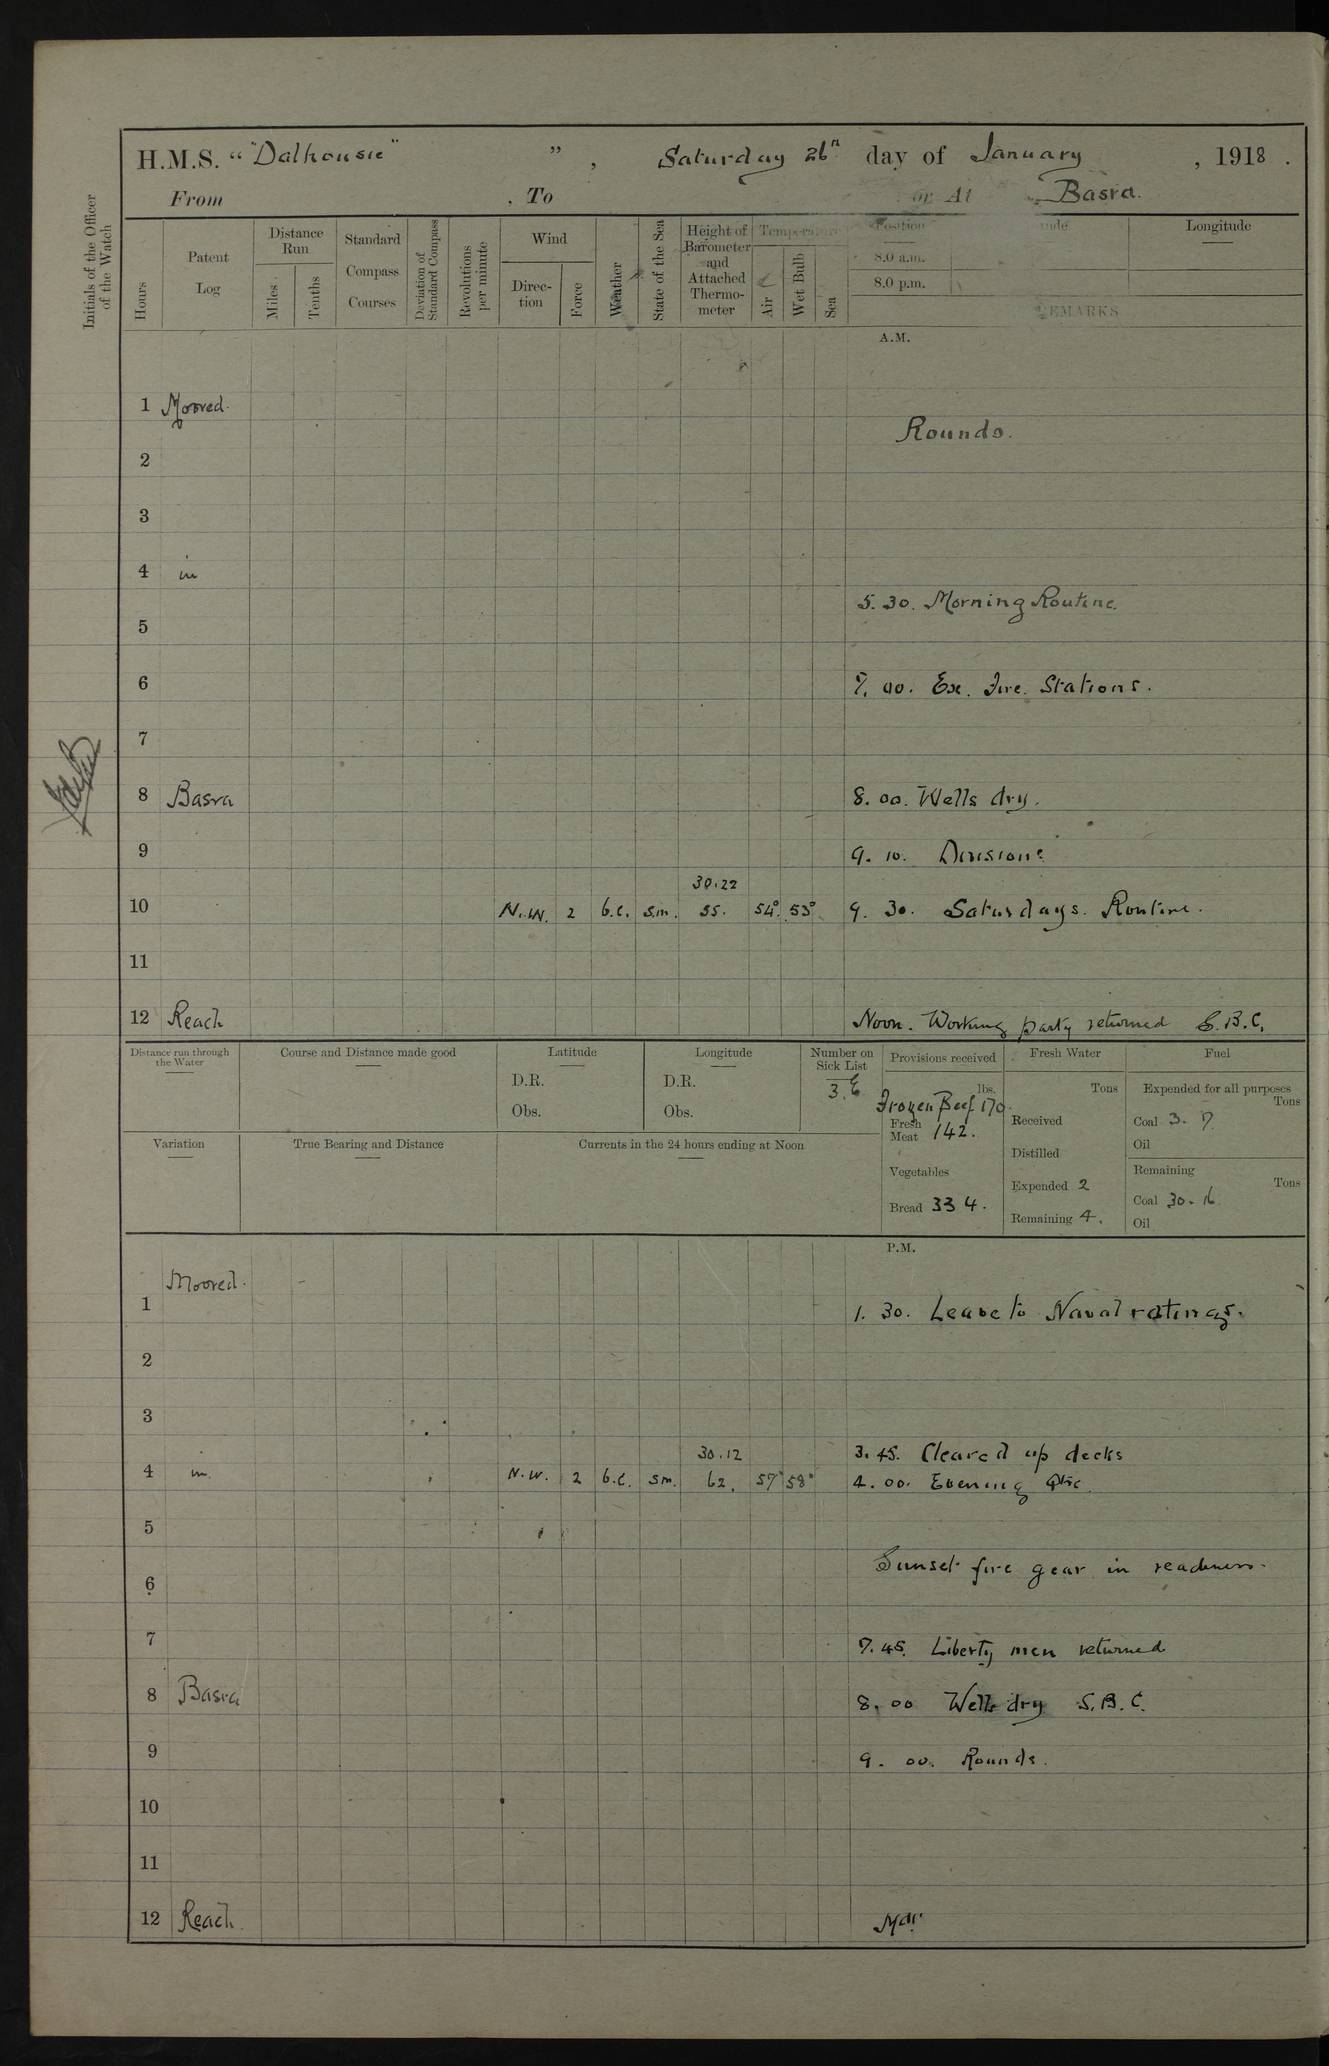 H.M.S. " "Dalhousie" ", Saturday 26th day of January, 1918.
From , To or At Basra.
Initials of the Officer of the Watch
Hours
Patent Log
Distance Run
Miles
Tenths
Standard Compass Courses
Deviation of Standard Compass
Revolutions per minute
Wind
Direction
Force
Weather
State of the Sea
Height of Barometer and Attached Thermometer
Temperature
Air
Wet Bulb
Sea
Position
8.0 a.m.
8.0 p.m.
Longitude
REMARKS
A.M.
1 Moored.
Rounds.
2
3
4 in
5.30. Morning Routine.
5
6 7.00. Ex. Fire. Stations.
7
8 Basra 8.00. Wells dry.
9 9.10. Divisions
30.22
10 N.W. 2 b.c. s.m. 55. 54° 53° 9.30. Saturdays. Routine.
11
12 Reach Noon. Working party returned S.B.C.
Distance run through the Water
Course and Distance made good
Latitude
D.R.
Obs.
Longitude
D.R.
Obs.
Number on Sick List
3.E
Provisions received
lbs.
Frozen Beef 170.
Fresh Meat 142.
Vegetables
Bread 334.
Fresh Water
Tons
Received
Distilled
Expended 2
Remaining 4.
Fuel
Expended for all purposes
Tons
Coal 3.17
Oil
Remaining
Tons
Coal 30.16
Oil
Variation
True Bearing and Distance
Currents in the 24 hours ending at Noon
P.M.
Moored.
1 1.30. Leave to Naval ratings.
2
3
30.12 3.45. Cleared up decks
4 in N.W. 2 b.c. sm. 62. 57° 58° 4.00. Evening Qtrs.
5
Sunset fire gear in readiness.
6
7 7.45. Liberty men returned
8 Basra 8.00 Wells dry S.B.C.
9 9.00. Rounds.
10
11
12 Reach.